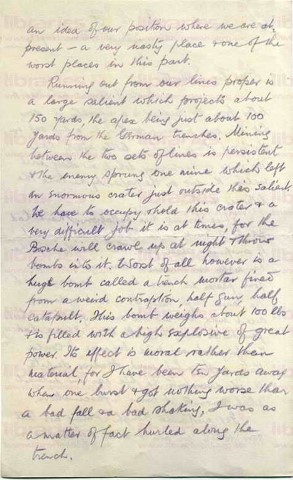 an idea of our position where we are at
present – a very nasty place & one of the
worst places in this part.
Running out from our lines proper is
a large salient which projects about
150 yards the apex being just about 100
yards from the German trenches. Mining
between the two sets of lines is persistent
& the enemy sprung one mine which left
an enormous crater just outside this salient
We have to occupy & hold this crater & a
very difficult job it is at times, for the
Bosche will crawl up at night & throw
bombs into it. Worst of all however is a
huge bomb called a trench mortar fired
from a weird contraption, half gun, half
catapult. This bomb weighs about 100 lbs
& is filled with a high explosive of great
power. Its effect is moral rather than
material, for I have been ten yards away
when one burst & got nothing worse than
a bad fall & a bad shaking, I was as
a matter of fact hurled along the
trench.